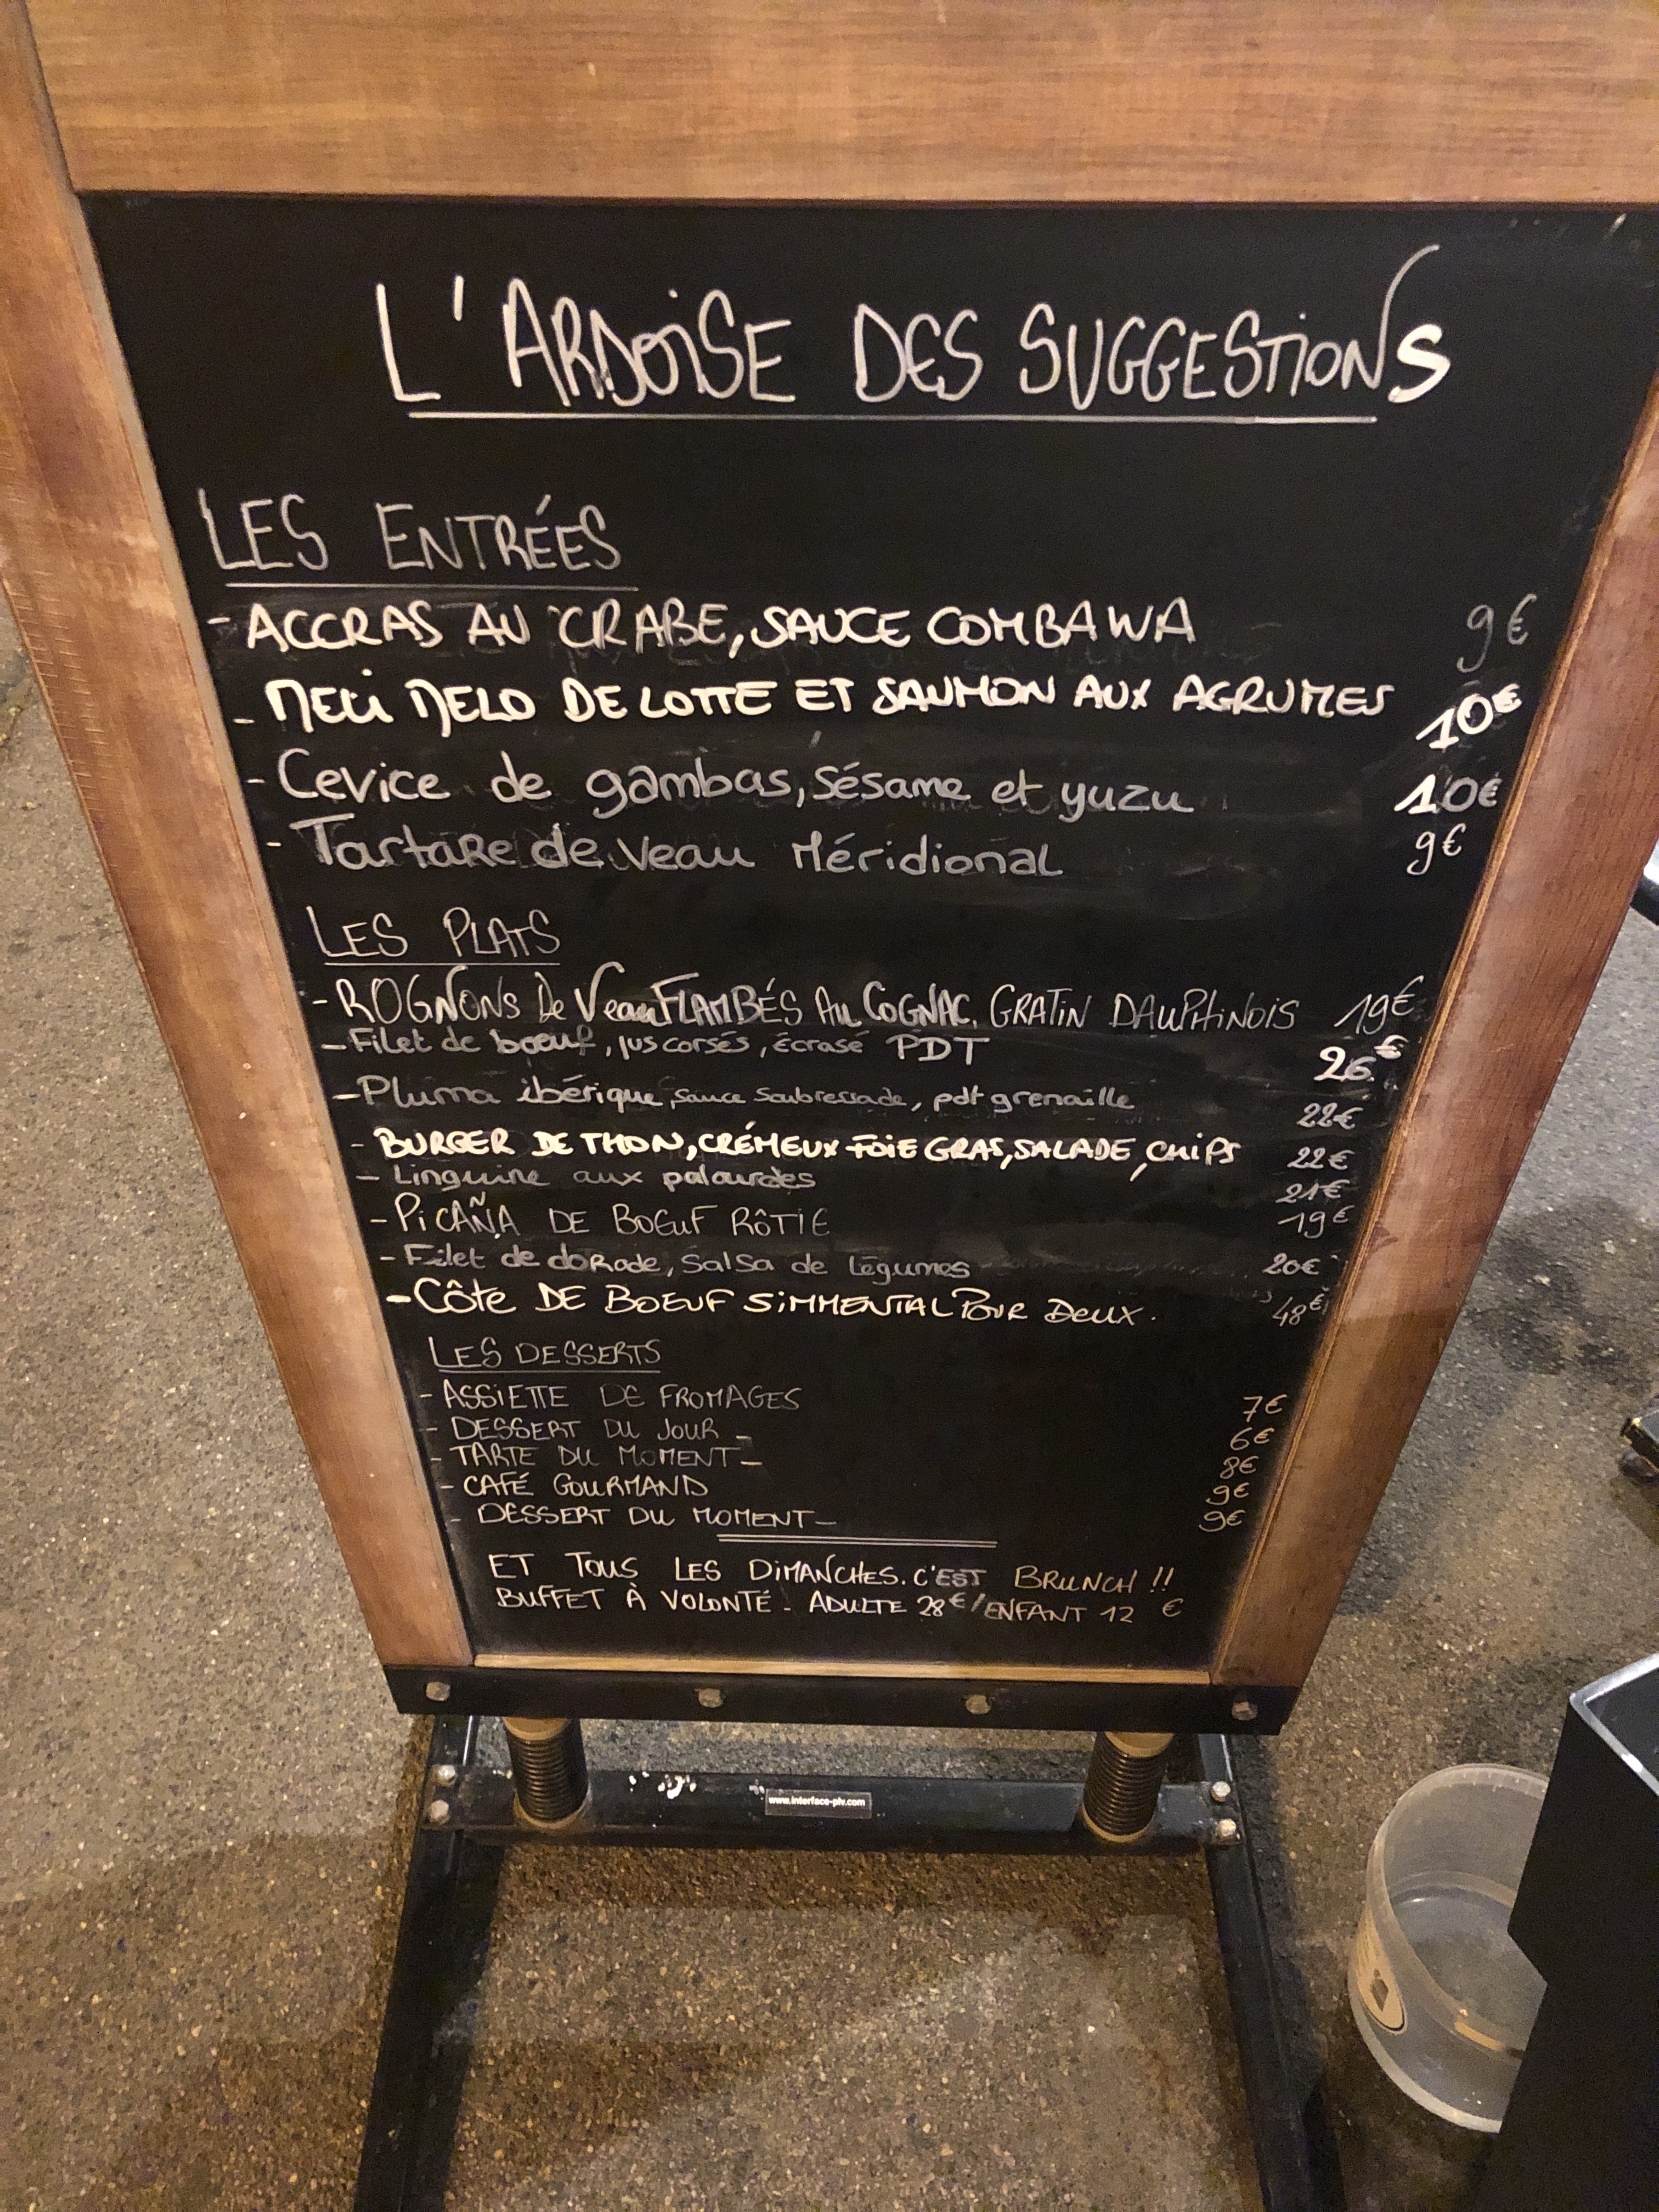 L'ARDOISE DES SUGGESTIONS
LES ENTRÉES
- ACCRAS AU CRABE, SAUCE COMBAWA 9€
- MELI MELO DE LOTTE ET SAUMON AUX AGRUMES 10€
- Cevice de gambas, sésame et yuzu 10€
- Tartare de veau Méridional 9€
LES PLATS
- ROGNONS De Veau FLAMBÉS Au COGNAC, GRATIN DAUPHINOIS 19€
- Filet de boeuf, jus corsés, écrasé PDT 26€
- Pluma ibérique, sauce soubressade, pdt grenaille 22€
- BURGER DE THON, CRÉMEUX FOIE GRAS, SALADE, CHIPS 22€
- Linguine aux palourdes 21€
- PICAÑA DE BOEUF RÔTIE 19€
- Filet de dorade, Salsa de légumes 20€
- Côte DE BOEUF SIMMENTAL POUR Deux. 48€
LES DESSERTS
- ASSIETTE DE FROMAGES 7€
- DESSERT DU JOUR - 6€
- TARTE DU MOMENT - 8€
- CAFÉ GOURMAND 9€
- DESSERT DU MOMENT - 9€
ET TOUS LES DIMANCHES. C'EST BRUNCH !!
BUFFET À VOLONTÉ - ADULTE 28€/ENFANT 12 €
www.interface-plv.com